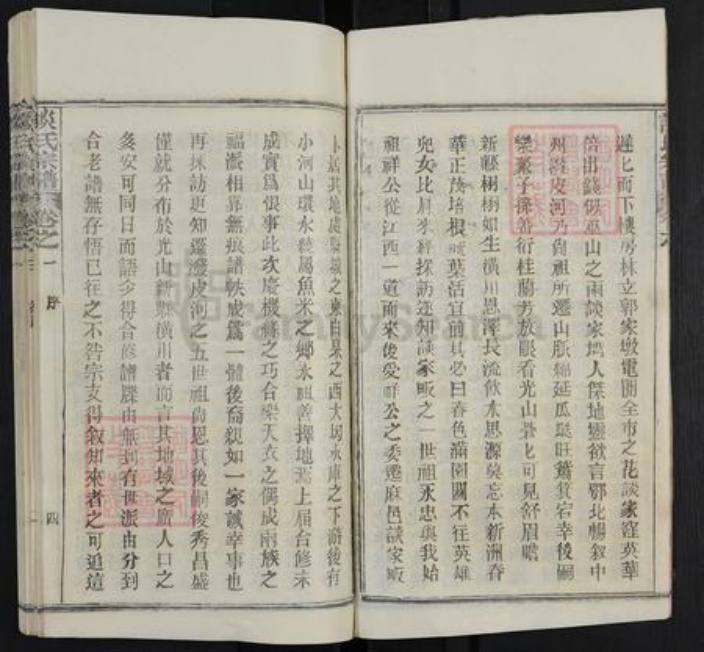 遷匕而下樓房林立郭家墩電開全市之花談家窪英華
倍出錢似巫山之雨談家塆人傑地靈欲言鄂北暢叙中
州潑皮河乃尚祖所遷山脉綿延瓜瓞旺鴛箕宕幸後嗣
樂蕃子孫善衍桂蘭芳放眼看光山疊匕可見舒眉瞻
新縣栩栩如生潢川恩澤長流飲水思源莫忘本新洲春
華正茂培根 葉活宜前其必曰春色滿園關不住英雄
兒女比肩來經採訪速知談家畈之一世祖永忠與我始
祖祥公從江西一道而來後受祥公之委遷麻邑談家畈
卜居其地處縣城之東白杲之西大坳水庫之下游後有
小河山環水繞屬魚米之鄉永祖善擇地焉上屆合修未
成實爲恨事此次慶機緣之巧合樂天衣之偶成兩族之
福派相靠無痕譜帙成爲一體後裔親如一家誠幸事也
再採訪更知遷潑皮河之五世祖尚恩其後嗣俊秀昌盛
僅就分布於光山新縣潢川者而言其地域之廣人口之
多安可同日而語少得合修譜牒由無到有世派由分到
合老譜無存悟已往之不咎宗支得叙知來者之可追這
談氏宗譜 卷之一 序 四
FamilySearch